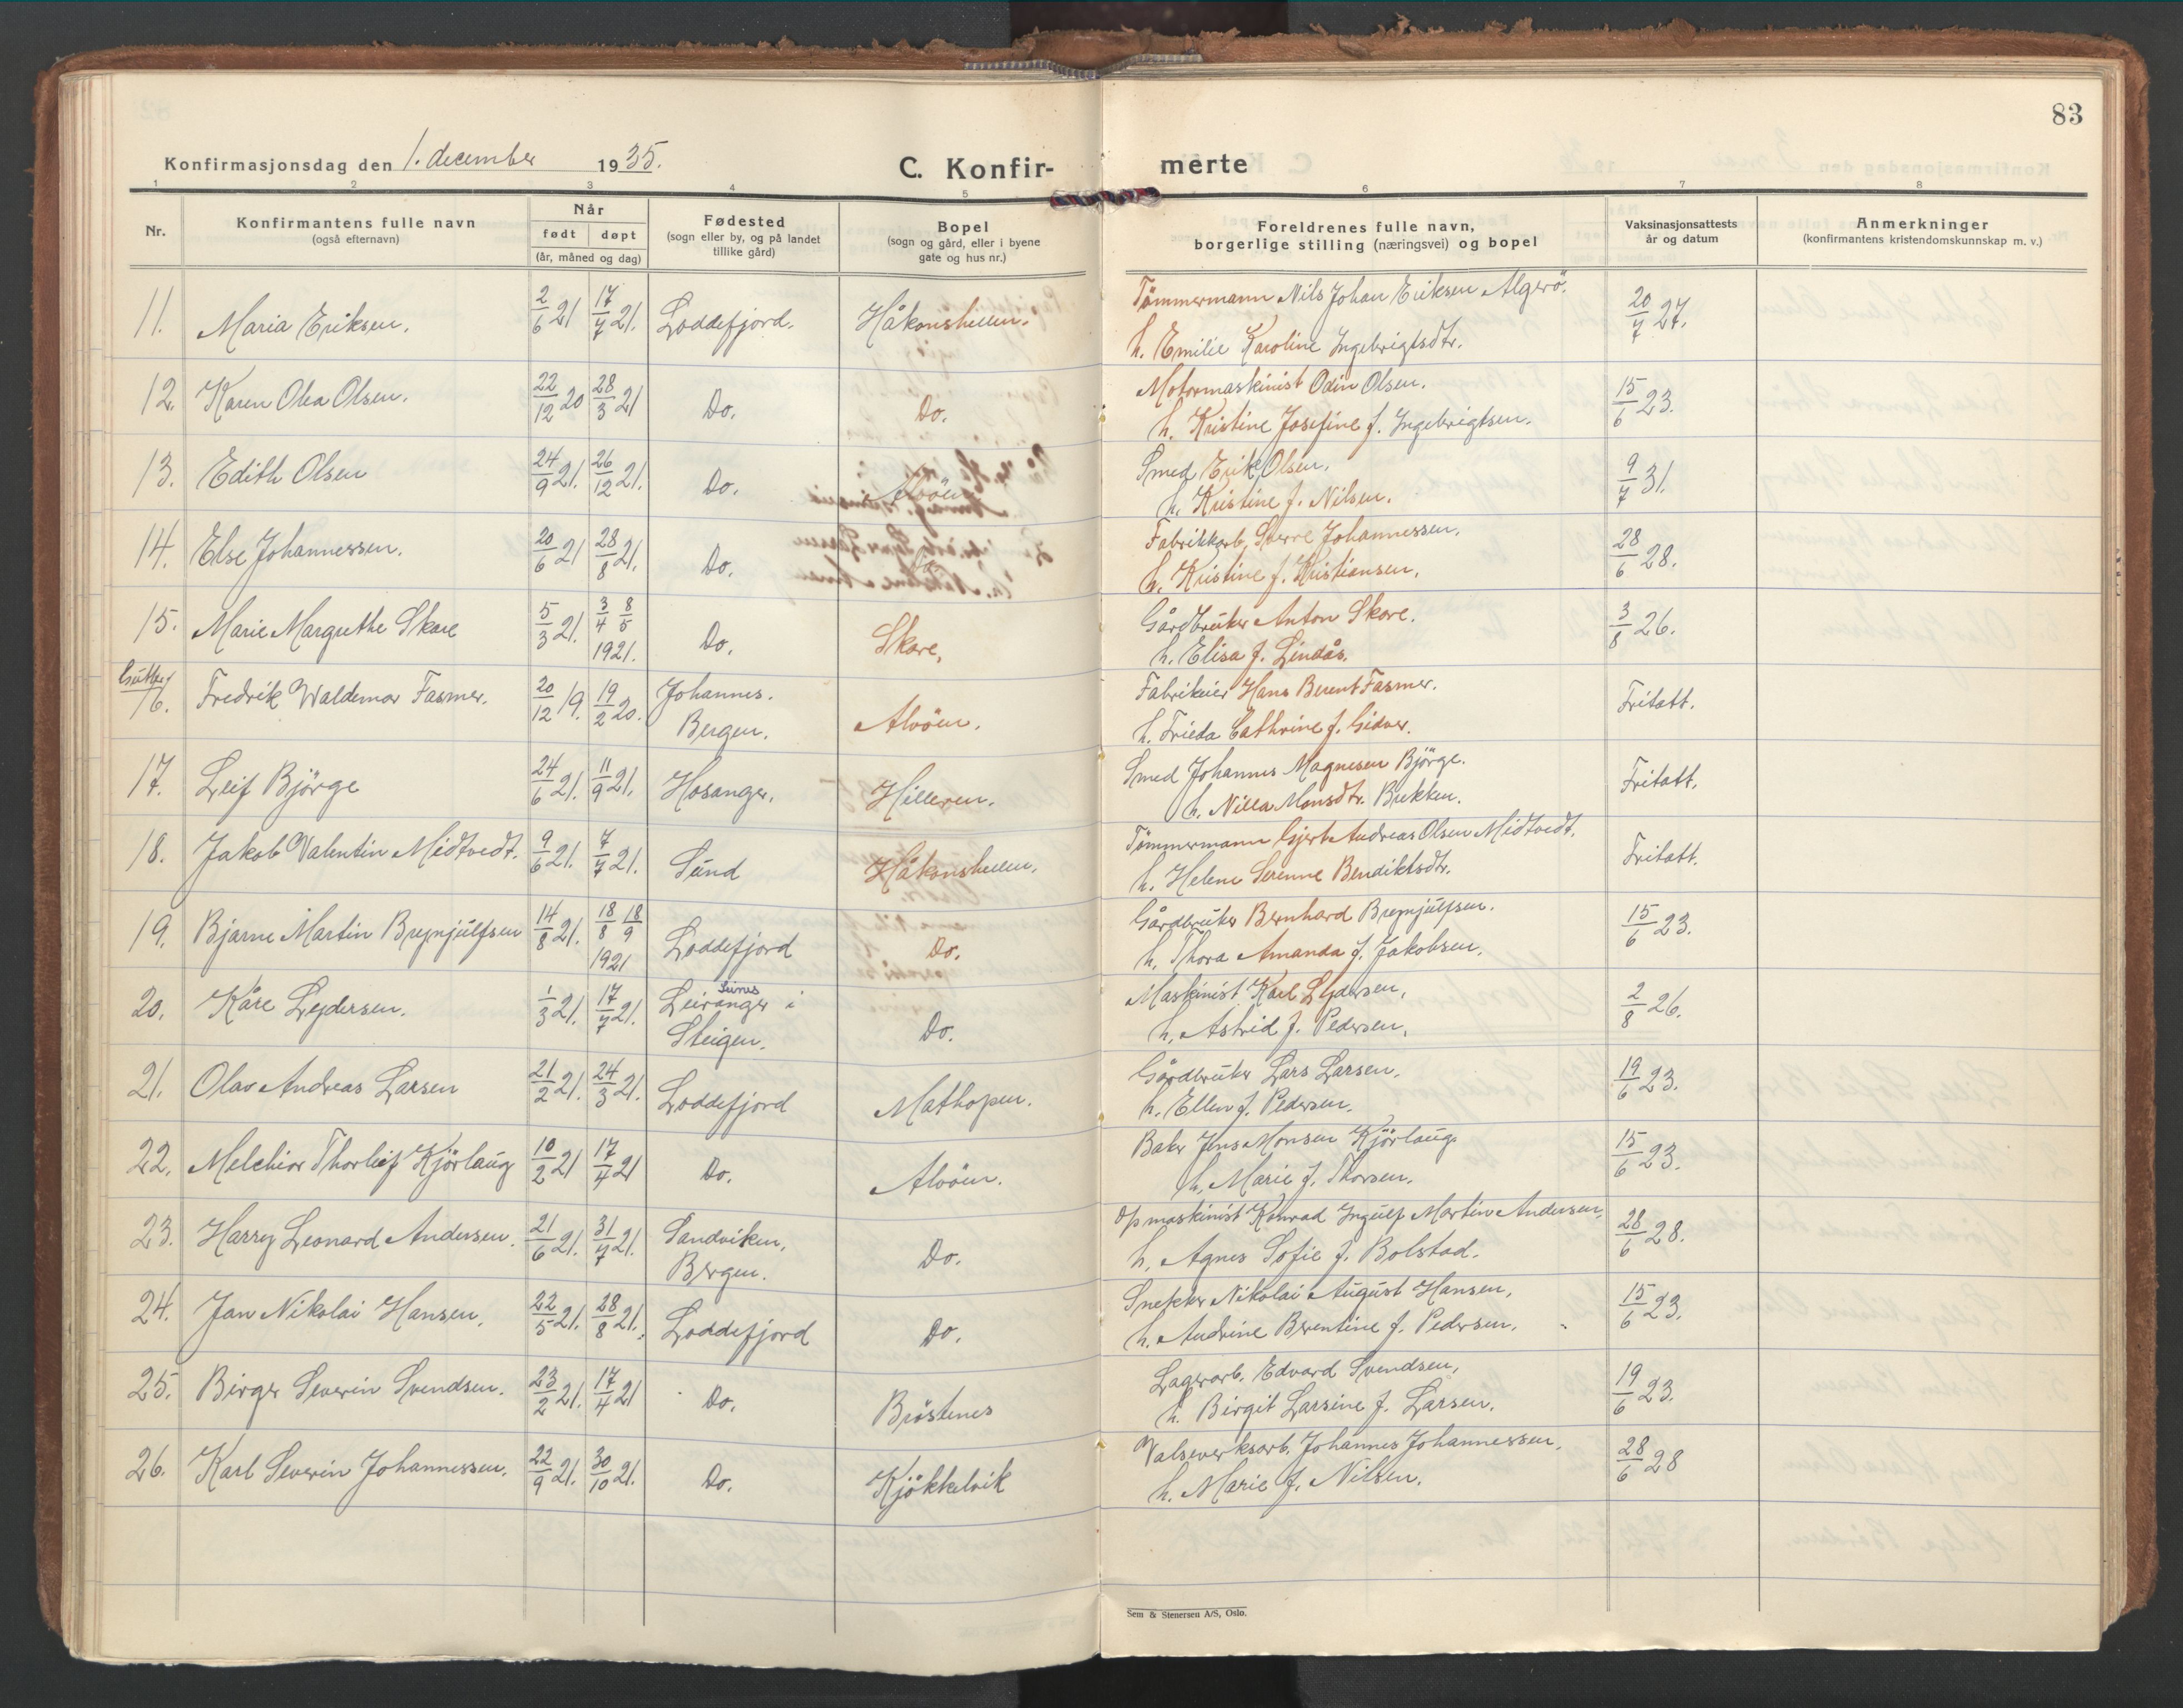 83
Konfirmasjonsdag den 1. december 1935.
C. Konfirmerte
1 2 3 4 5 6 7 8
Nr. Konfirmantens fulle navn (også efternavn) Når født døpt (år, måned og dag) Fødested (sogn eller by, og på landet tillike gård) Bopel (sogn og gård, eller i byene gate og hus nr.) Foreldrenes fulle navn, borgerlige stilling (næringsvei) og bopel Vaksinasjonsattests år og datum Anmerkninger (konfirmantens kristendomskunnskap m. v.)
11. Maria Eriksen. 2/6 21 17/7 21. Loddefjord. Håkonshellen. Tömmermann Nils Johan Eriksen Algerö. 20/7 27.
h. Emilie Karoline Ingebrigtsdtr.
12. Karen Olea Olsen. 22/12 20 28/3 21 Do. Do. Motormaskinist Odin Olsen. 15/6 23.
h. Kristine Josefine f. Ingebrigtsen.
13. Edith Olsen 24/9 21. 26/12 21. Do. Alvöen Smed Erik Olsen. 9/7 31.
h. Kristine f. Nilsen.
14. Else Johannessen. 20/6 21 28/8 21. Do. Do. Fabrikkarb. Sverre Johannessen. 28/6 28.
h. Kristine f. Kristiansen.
15. Marie Margrethe Skare 5/3 21. 3/4 8/5 1921. Do. Skare. Gårdbruker Anton Skare. 3/8 26.
h. Elisa f. Lindås.
Gutter
16. Fredrik Waldemar Fasmer. 20/12 19. 19/2 20. Johannes. Bergen. Alvöen. Fabrikeier Hans Berent Fasmer. Fritatt.
h. Frieda Cathrine f. Gidver.
17. Leif Björge 24/6 21. 11/9 21. Hosanger. Hilleren. Smed Johannes Magnesen Björge. Fritatt.
h. Nilla Monsdtr. Brekken.
18. Jakob Valentin Midtvedt. 9/6 21. 7/7 21. Sund Håkonshellen. Tömmermann Gjert Andreas Olsen Midtvedt. Fritatt.
h. Helene Serenne Bendiktsdtr.
19. Bjarne Martin Brynjulfsen 14/8 21. 18/8 18/9 1921 Loddefjord Do. Gårdbruker Bernhard Brynjulfsen. 15/6 23.
h. Thora Amanda f. Jakobsen.
20. Kåre Lejdersen. 1/3 21. 17/7 21. Leiranger i Steigen. Do. Maskinist Karl Lejdersen. 2/8 26.
h. Astrid f. Pedersen.
21. Olav Andreas Larsen 21/2 21. 24/3 21. Loddefjord Mathopen. Gårdbruker Lars Larsen. 19/6 23.
h. Ellen f. Pedersen.
22. Melchior Thorleif Kjörlaug 10/2 21 17/4 21 Do. Alvöen. Baker Jens Monsen Kjörlaug 15/6 23.
h. Marie f. Thorsen.
23. Harry Leonard Andersen. 21/6 21. 31/7 21. Sandviken, Bergen. Do. Opmaskinist Konrad Ingulf Martin Andersen, 28/6 28.
h. Agnes Sofie f. Bolstad.
24. Jan Nikolai Hansen. 22/5 21. 28/8 21. Loddefjord Do. Snekker Nikolai August Hansen, 15/6 23.
h. Andrine Berentine f. Pedersen.
25. Birger Severin Svendsen. 23/2 21. 17/4 21 Do. Bröstenes Lagerarb. Edvard Svendsen, 19/6 23.
h. Birgit Larsine f. Larsen.
26. Karl Severin Johannessen. 22/9 21. 30/10 21. Do. Kjökkelvik Valseverksarb. Johannes Johannessen, 28/6 28
h. Marie f. Nilsen.
Sem & Stenersen A/S, Oslo.